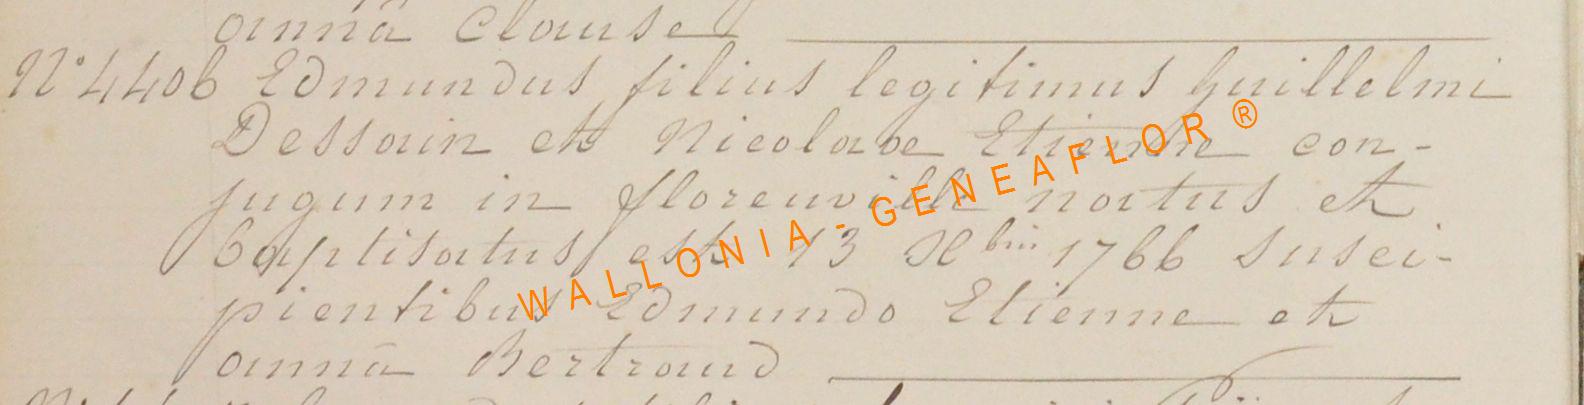 anna Clause
N° 4406 Edmundus filius legitimus Guillelmi
Dessain et Nicolaae Etienne con-
jugum in florenville natus et
baptisatus est 13 Xbris 1766 susci-
pientibus Edmundo Etienne et
annâ Bertrand
WALLONIA - GENEAFLOR ®